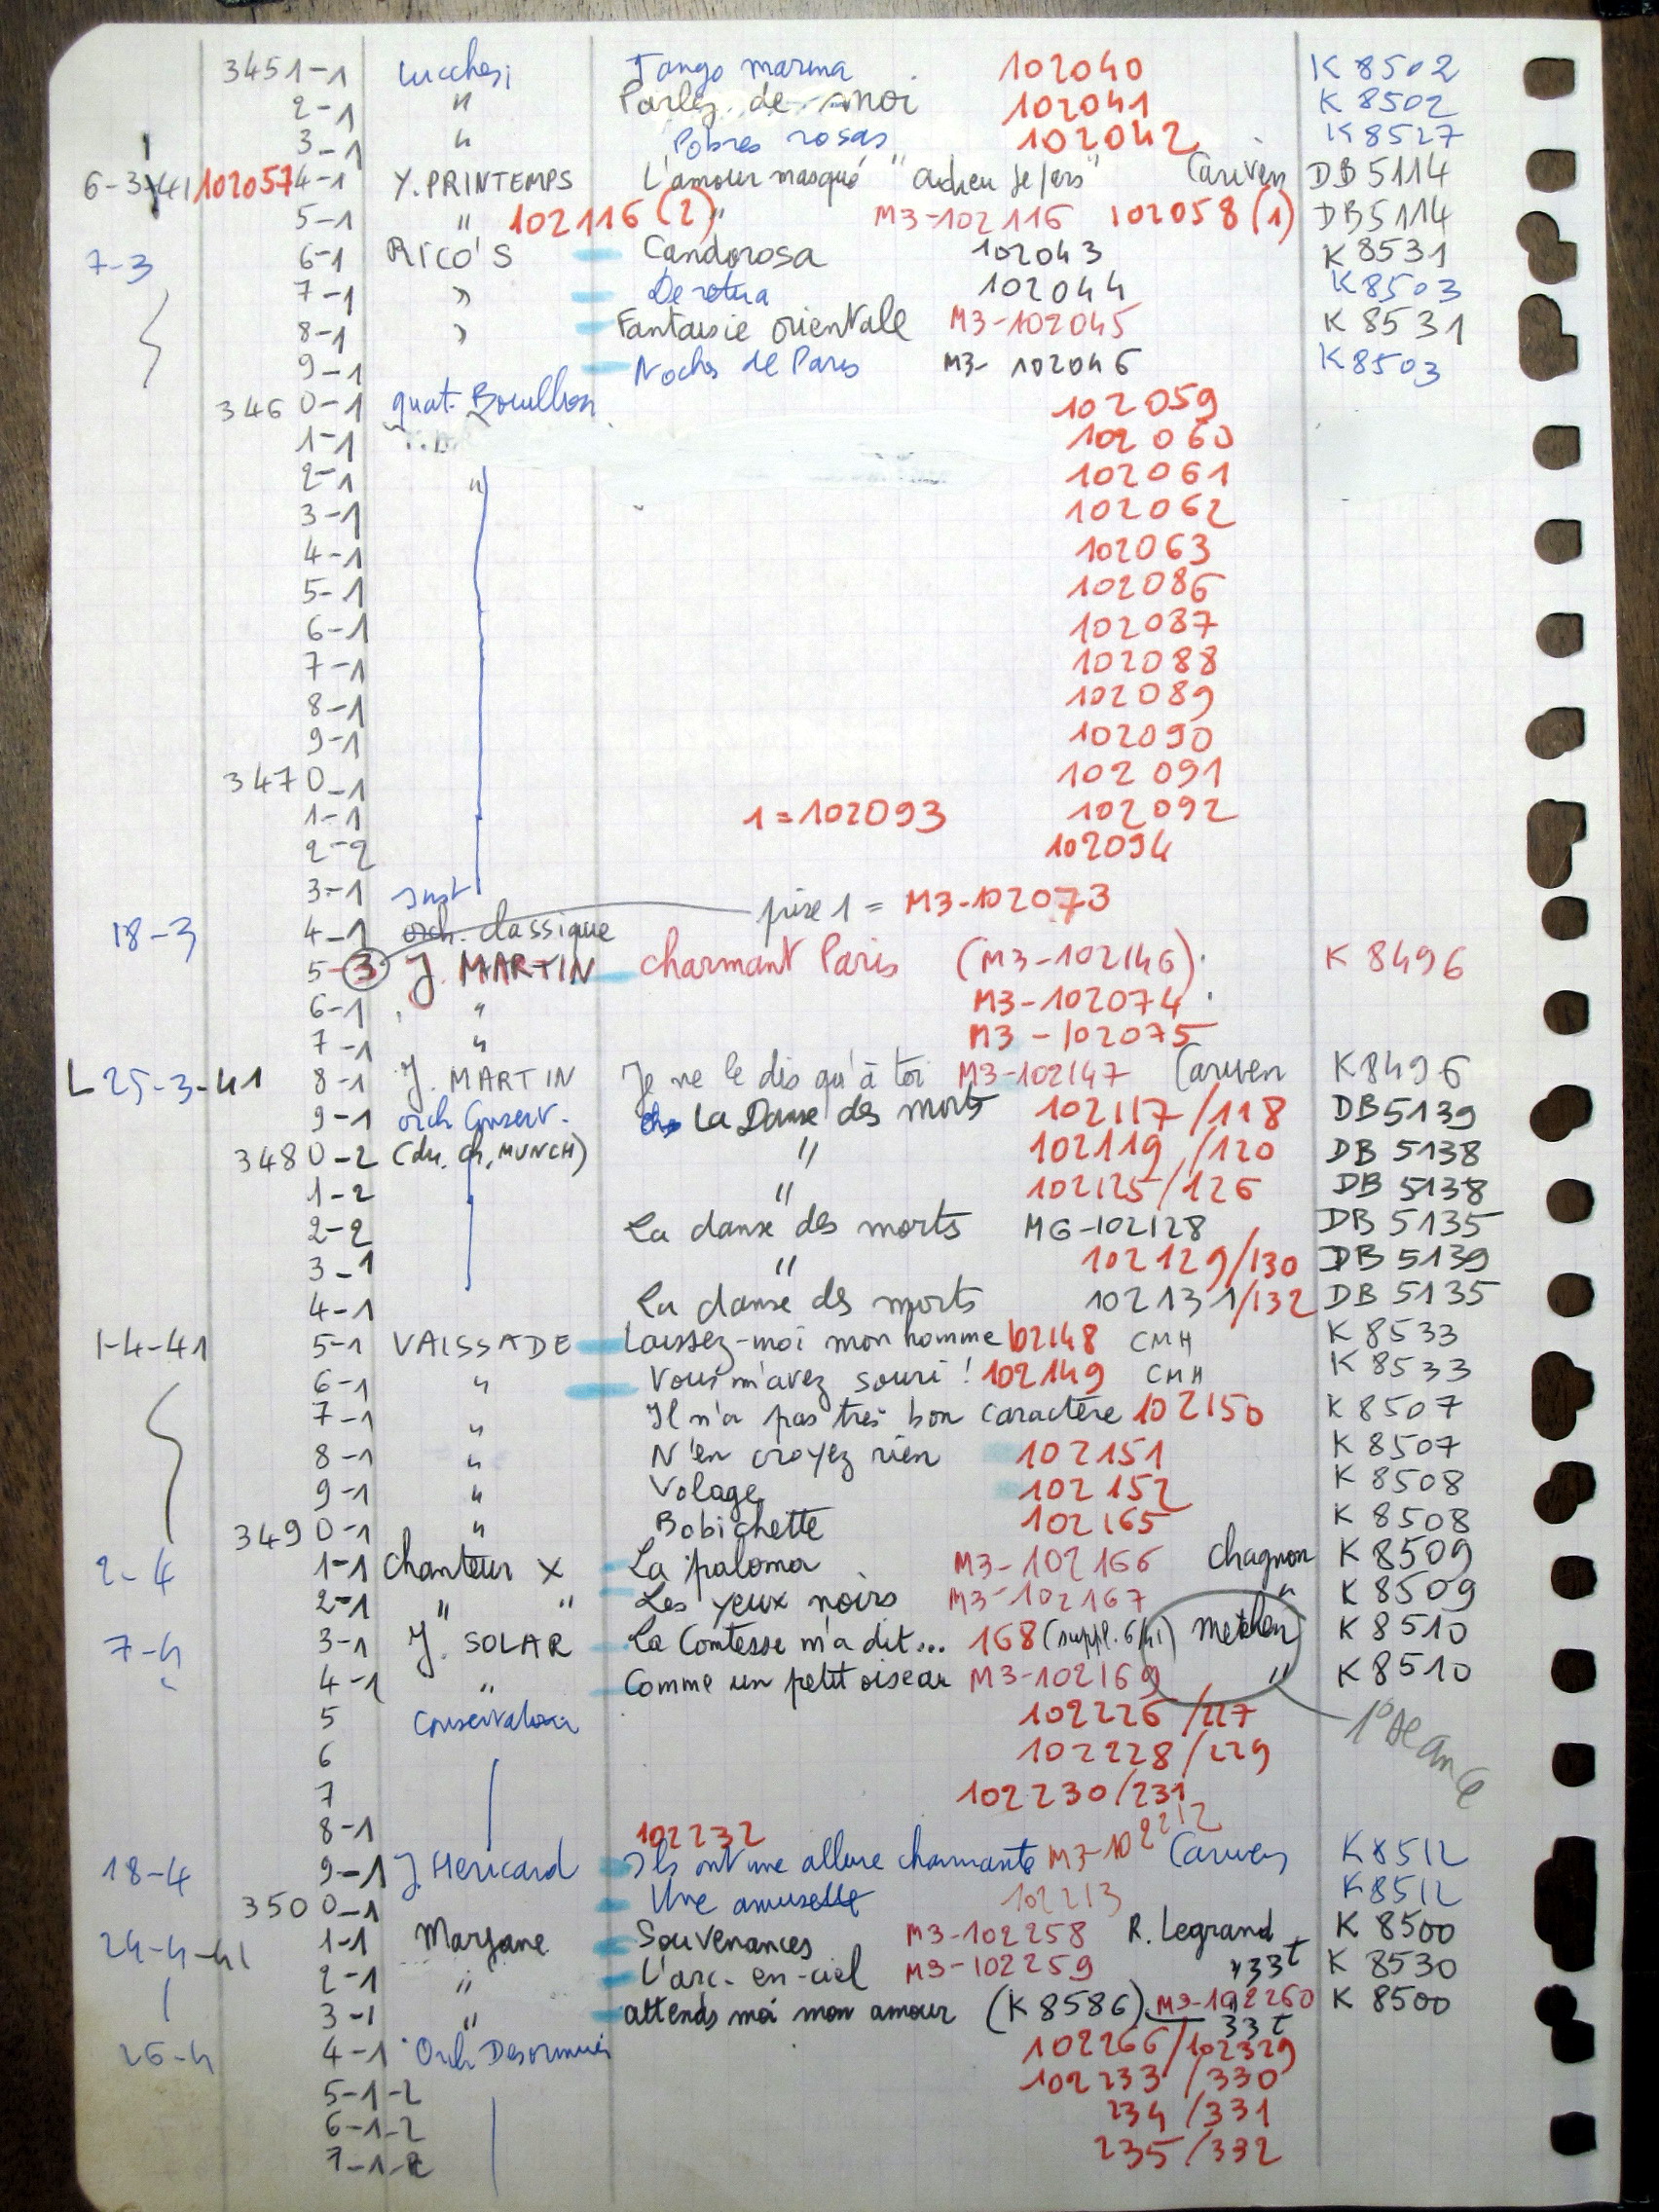 3451-1 Lucchesi Tango marina 102040 K 8502
2-1 " Parlez de moi 102041 K 8502
3-1 " Pobres rosas 102042 K8527
6-3-41 102057 4-1 Y. PRINTEMPS L'amour masqué " Cariven DB 5114
5-1 " 102116 (2) " M3-102116 102058 (1) DB5114
7-3 6-1 RICO'S Candorosa 102043 K 8531
7-1 " 102044 K8503
8-1 " Fantaisie orientale M3-102045 K 8531
9-1 Noches de Paris M3- 102046 K8503
346 0-1 quat. Bouillon 102059
1-1 102060
2-1 " 102061
3-1 102062
4-1 102063
5-1 102086
6-1 102087
7-1 102088
8-1 102089
9-1 102090
347 0-1 102091
1-1 1=102093 102092
2-2 102094
3-1 Inst
prise 1 = M3-102073
18-3 4-1 orch. classique
5-3 J. MARTIN charmant Paris (M3-102146) K 8496
6-1 " M3-102074
7-1 " M3-102075
L 25-3-41 8-1 J. MARTIN Je ne le dis qu'à toi M3-102147 Cariven K8496
9-1 orch Conserv. La Danse des morts 102117/118 DB5139
348 0-2 (dir. Ch. MUNCH) " 102119/120 DB 5138
1-2 " 102125/126 DB 5138
2-2 La danse des morts MG-102128 DB 5135
3-1 " 102129/130 DB 5139
4-1 La danse des morts 102131/132 DB 5135
1-4-41 5-1 VAISSADE Laissez-moi mon homme 102148 CMH K 8533
6-1 " Vous m'avez souri ! 102149 CMH K 8533
7-1 " Il n'a pas très bon caractère 102150 K 8507
8-1 " N'en croyez rien 102151 K 8507
9-1 " Volage 102152 K 8508
349 0-1 " Bobichette 102165 K 8508
2-4 1-1 Chanteur X La paloma M3-102166 Chagnon K 8509
2-1 " " Les yeux noirs M3-102167 " K 8509
7-4 3-1 J. SOLAR La Comtesse m'a dit... 168 (suppl. 6/41) Metehen K 8510
4-1 " Comme un petit oiseau M3-102169 " K 8510
5 Conservatoire 102226/227
1° séance
6 102228/229
7 102230/231
8-1 102232
18-4 9-1 J. Hericard Ils ont une allure charmante M3-102212 Cariven K8512
350 0-1 Une amusette 102213 K8512
24-4-41 1-1 Marjane Souvenances M3-102258 R. Legrand K 8500
2-1 " L'arc-en-ciel M3-102259 " 33t K 8530
3-1 " attends moi mon amour (K 8586) M3-102260 " 33t K 8500
26-4 4-1 Orch Desormière 102266/102329
5-1-2 102233/330
6-1-2 234/331
7-1-2 235/332